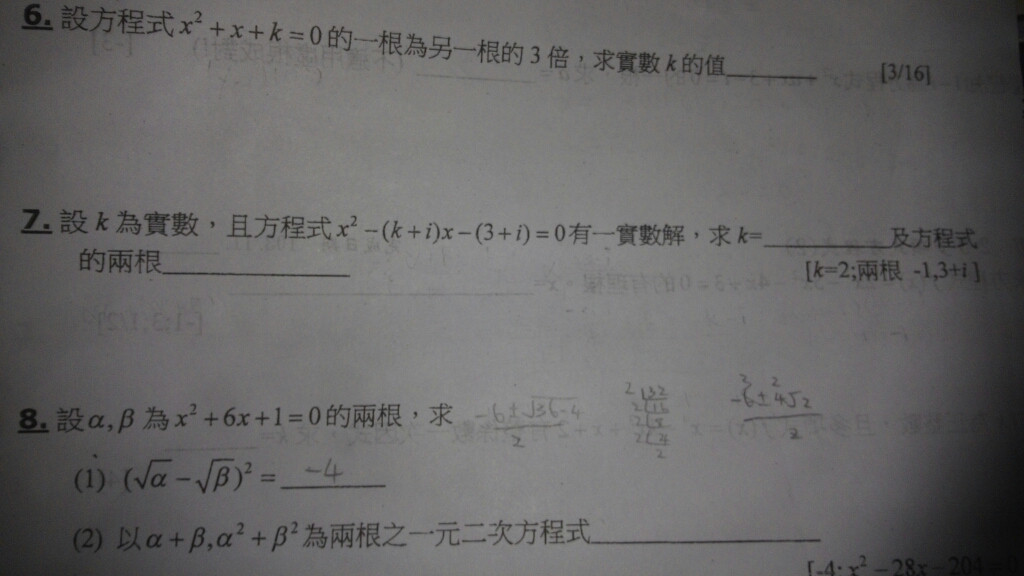 6. 設方程式 x² + x + k = 0 的一根為另一根的 3 倍，求實數 k 的值______ [3/16]
7. 設 k 為實數，且方程式 x² − (k + i)x − (3 + i) = 0 有一實數解，求 k=______及方程式
的兩根______ [k=2;兩根 -1,3+i]
8. 設 α, β 為 x² + 6x + 1 = 0 的兩根，求 (-6±√(36-4))/2 (-6±4√2)/2
(1) (√α − √β)² = -4
(2) 以 α + β, α² + β² 為兩根之一元二次方程式______
[-4; x² − 28x − 204 = 0